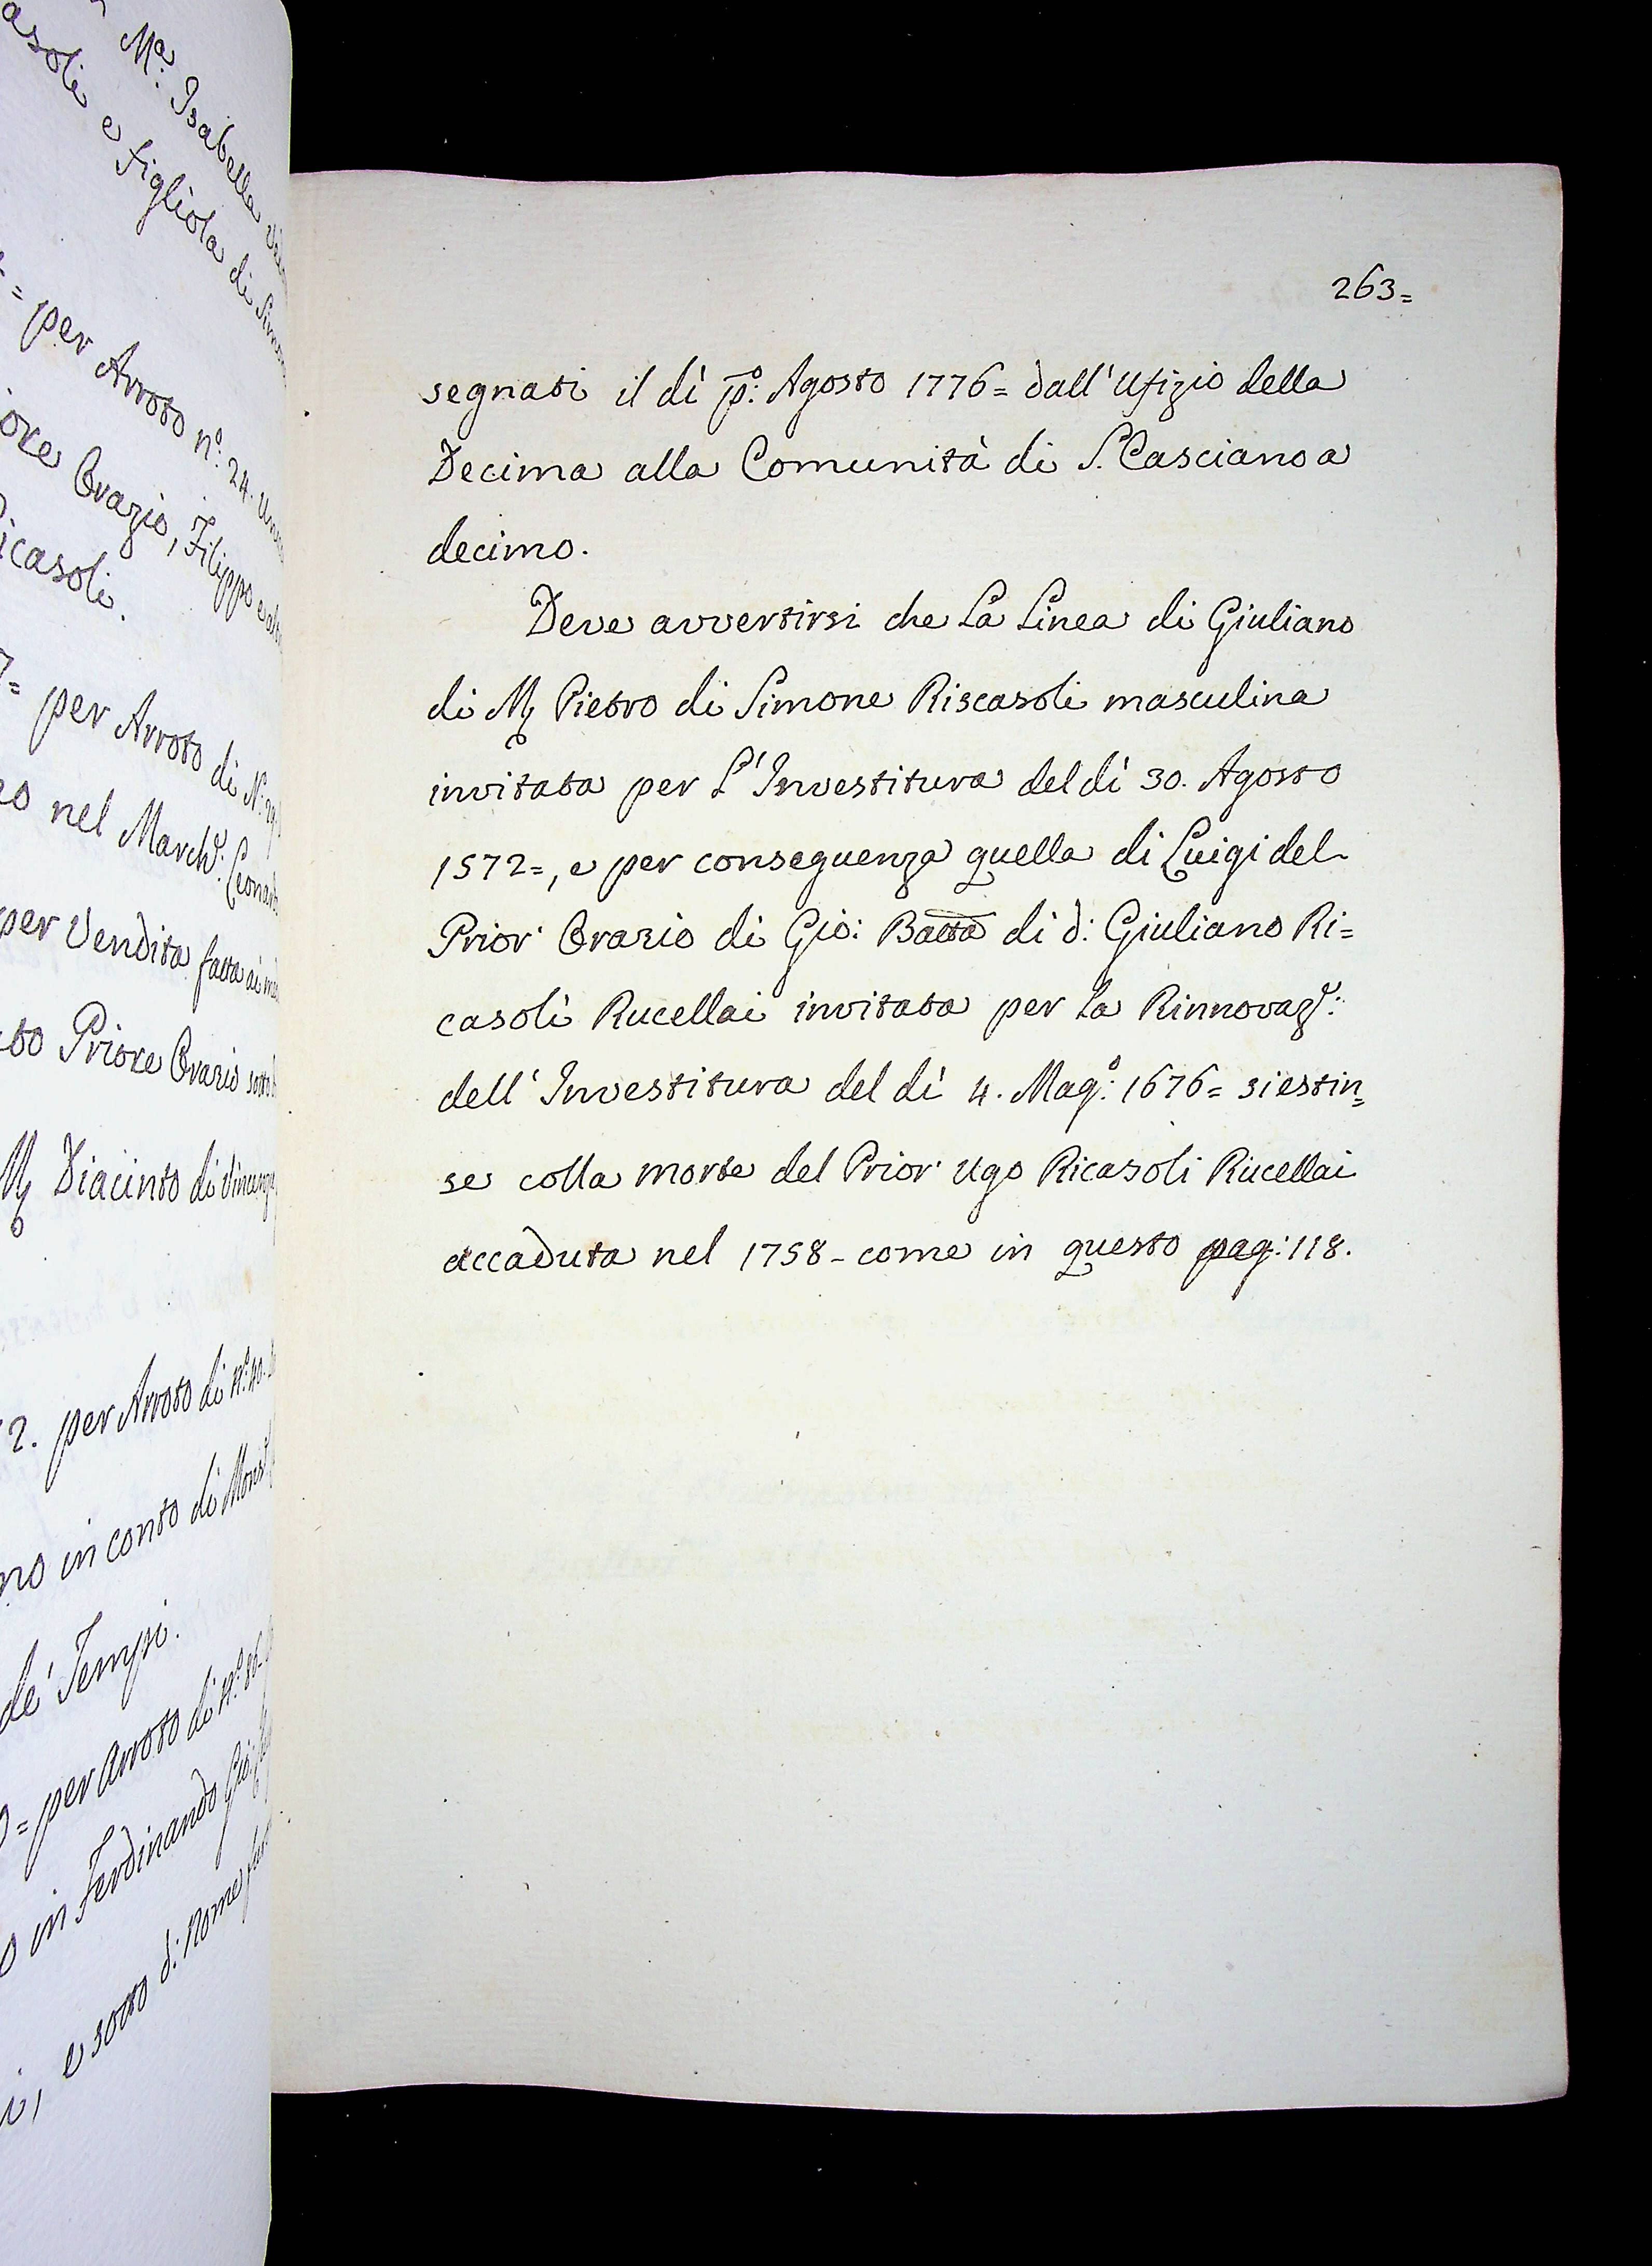 Mª: Isabella
asoli e figliola di Simone
= per Arroto nº: 24.
iore Orazio, Filippo e
icasoli.
7= per Arroto di Nº:
eo nel Marchº:
per Vendita fatta ai
to Priore Orazio
M Diacinto di Vincenzo
2. per Arroto di Nº: 40.
no in conto di
de' Tempi.
0= per Arroto di Nº: 86.
o in Ferdinando
i, e sotto d: Nome
263=
segnati il dì pº: Agosto 1776= dall'Ufizio della
Decima alla Comunità di S. Casciano a
decimo.
Deve avvertirsi che La Linea di Giuliano
di M Pietro di Simone Riscasoli masculina
invitata per L'Investitura del dì 30. Agosto
1572=, e per conseguenza quella di Luigi del
Prior Orazio di Gio: Batta di d: Giuliano Ri=
casoli Rucellai invitata per La Rinnovazº:
dell'Investitura del dì 4. Magº: 1676= si estin=
se colla morte del Prior Ugo Ricasoli Rucellai
accaduta nel 1758 - come in questo pag: 118.